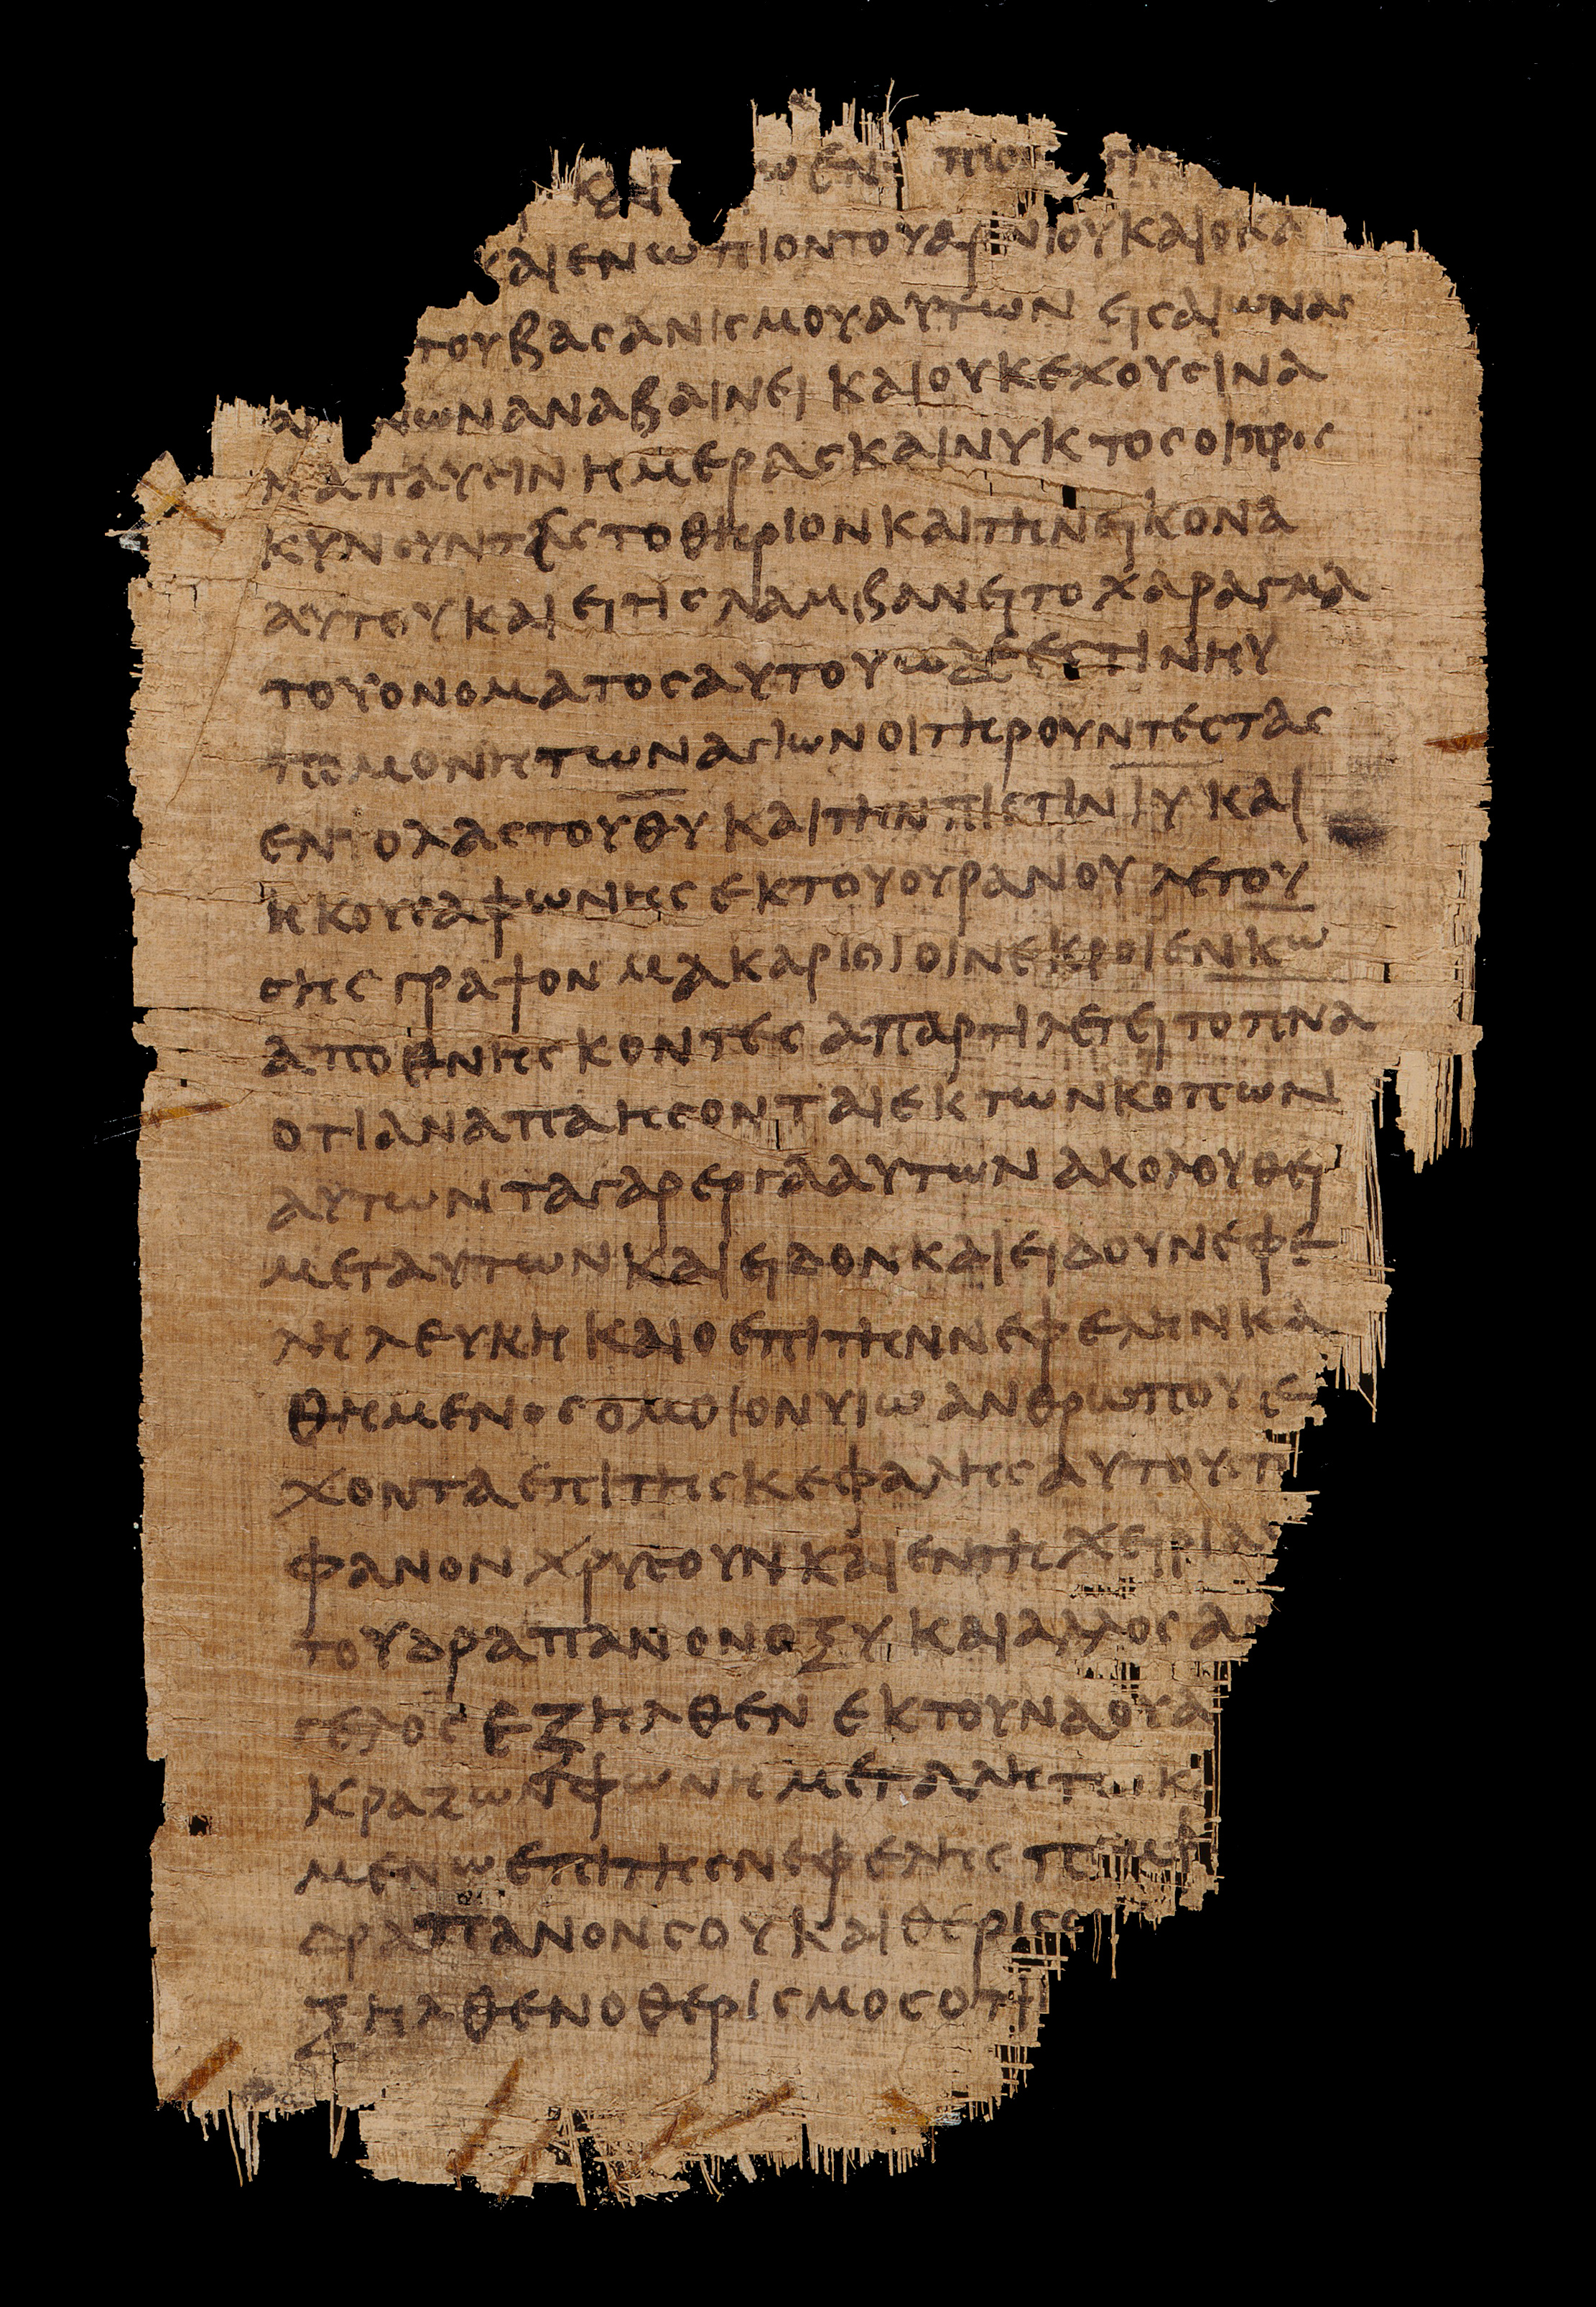 και ενωπιον
και ενωπιον του αρνιου και ο κα
του βασανισμου αυτων εις αιωνας
αι νων αναβαινει και ουκ εχουσιν α
ναπαυσιν ημερας και νυκτος οι προσ
κυνουντες το θηριον και την εικονα
αυτου και ει τις λαμβανει το χαραγμα
του ονοματος αυτου ωδε εστιν η υ
πομονη των αγιων οι τηρουντες τας
εντολας του θυ και την πιστιν ιυ και
ηκουσα φωνης εκ του ουρανου λεγου
σης γραψον μακαριοι οι νεκροι εν κω
αποθνησκοντες απαρτι λεγει το πνα
οτι αναπαησονται εκ των κοπων
αυτων τα γαρ εργα αυτων ακολουθει
μετ αυτων και ειδον και ειδου νεφε
λη λευκη και ο επι την νεφελην κα
θημενος ομοιον υιω ανθρωπου ε
χοντα επι της κεφαλης αυτου στ
φανον χρυσουν και εν τη χειρι αυ
του δραπανον οξυ και αλλος αγ
γελος εξηλθεν εκ του ναου α
κραζων φωνη μεγαλη τω κα
μενω επι της νεφελης πεμψ
δραπανον σου και θερισο
ξηλθεν ο θερισμος οτι